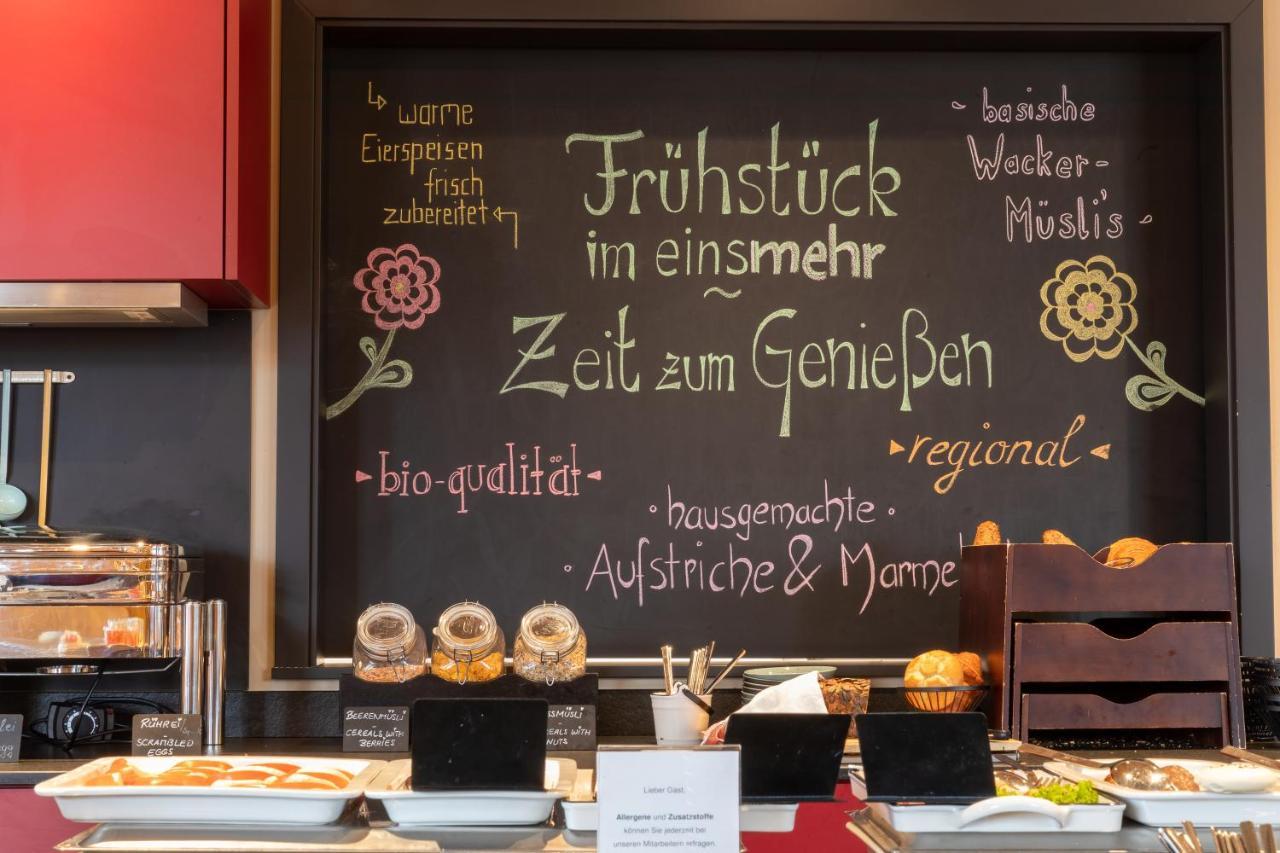 warme
Eierspeisen
frisch
zubereitet
Frühstück
im einsmehr
~
Zeit zum Genießen
~ basische
Wacker-
Müsli's ~
bio-qualität
regional
• hausgemachte •
• Aufstriche & Marme
RÜHREI
SCRAMBLED
EGGS
BEERENMÜSLI
CEREALS WITH
BERRIES
SSMÜSLI
CEREALS WITH
NUTS
Lieber Gast,
Allergene und Zusatzstoffe
können Sie jederzeit bei
unseren Mitarbeitern erfragen.